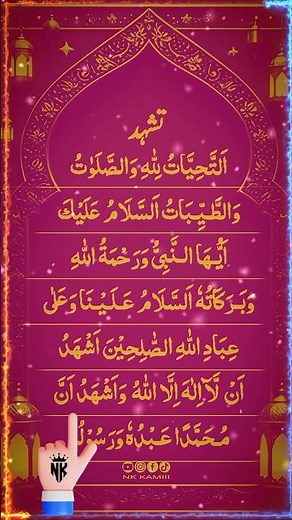 تشہد
اَلتَّحِيَّاتُ لِلّٰهِ وَالصَّلَوٰتُ
وَالطَّيِّبَاتُ اَلسَّلَامُ عَلَيْكَ
اَيُّهَا النَّبِيُّ وَرَحْمَةُ اللهِ
وَبَرَكَاتُهٗ اَلسَّلَامُ عَلَيْنَا وَعَلٰى
عِبَادِ اللهِ الصّٰلِحِيْنَ اَشْهَدُ
اَنْ لَّآ اِلٰهَ اِلَّا اللهُ وَاَشْهَدُ اَنَّ
مُحَمَّدًا عَبْدُهٗ وَرَسُوْلُهٗ
NK
NK KAMIII